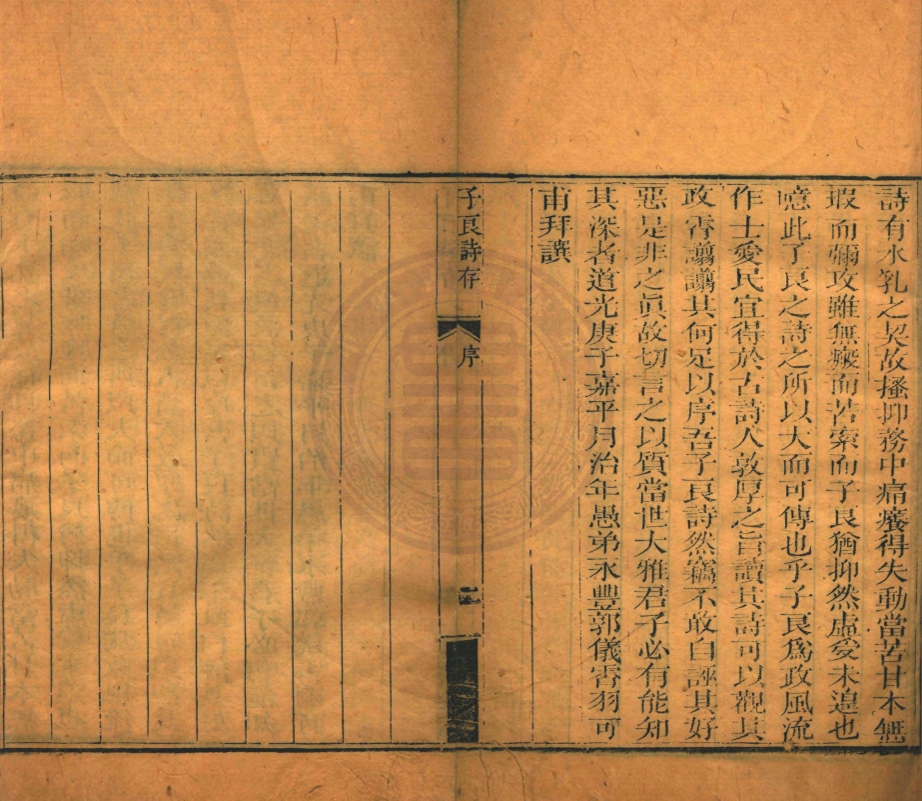 詩有水乳之契故搔抑務中痛癢得失動當苦甘本無
瑕而彌攻雖無癥而苦索而子良猶抑然虛受未遑也
噫此子良之詩之所以大而可傳也乎子良爲政風流
作士愛民宜得於古詩人敦厚之旨讀其詩可以觀其
政霄譾譾其何足以序吾子良詩然竊不敢自誣其好
惡是非之眞故切言之以質當世大雅君子必有能知
其深者道光庚子嘉平月治年愚弟永豐郭儀霄羽可
甫拜譔
子良詩存
序
二